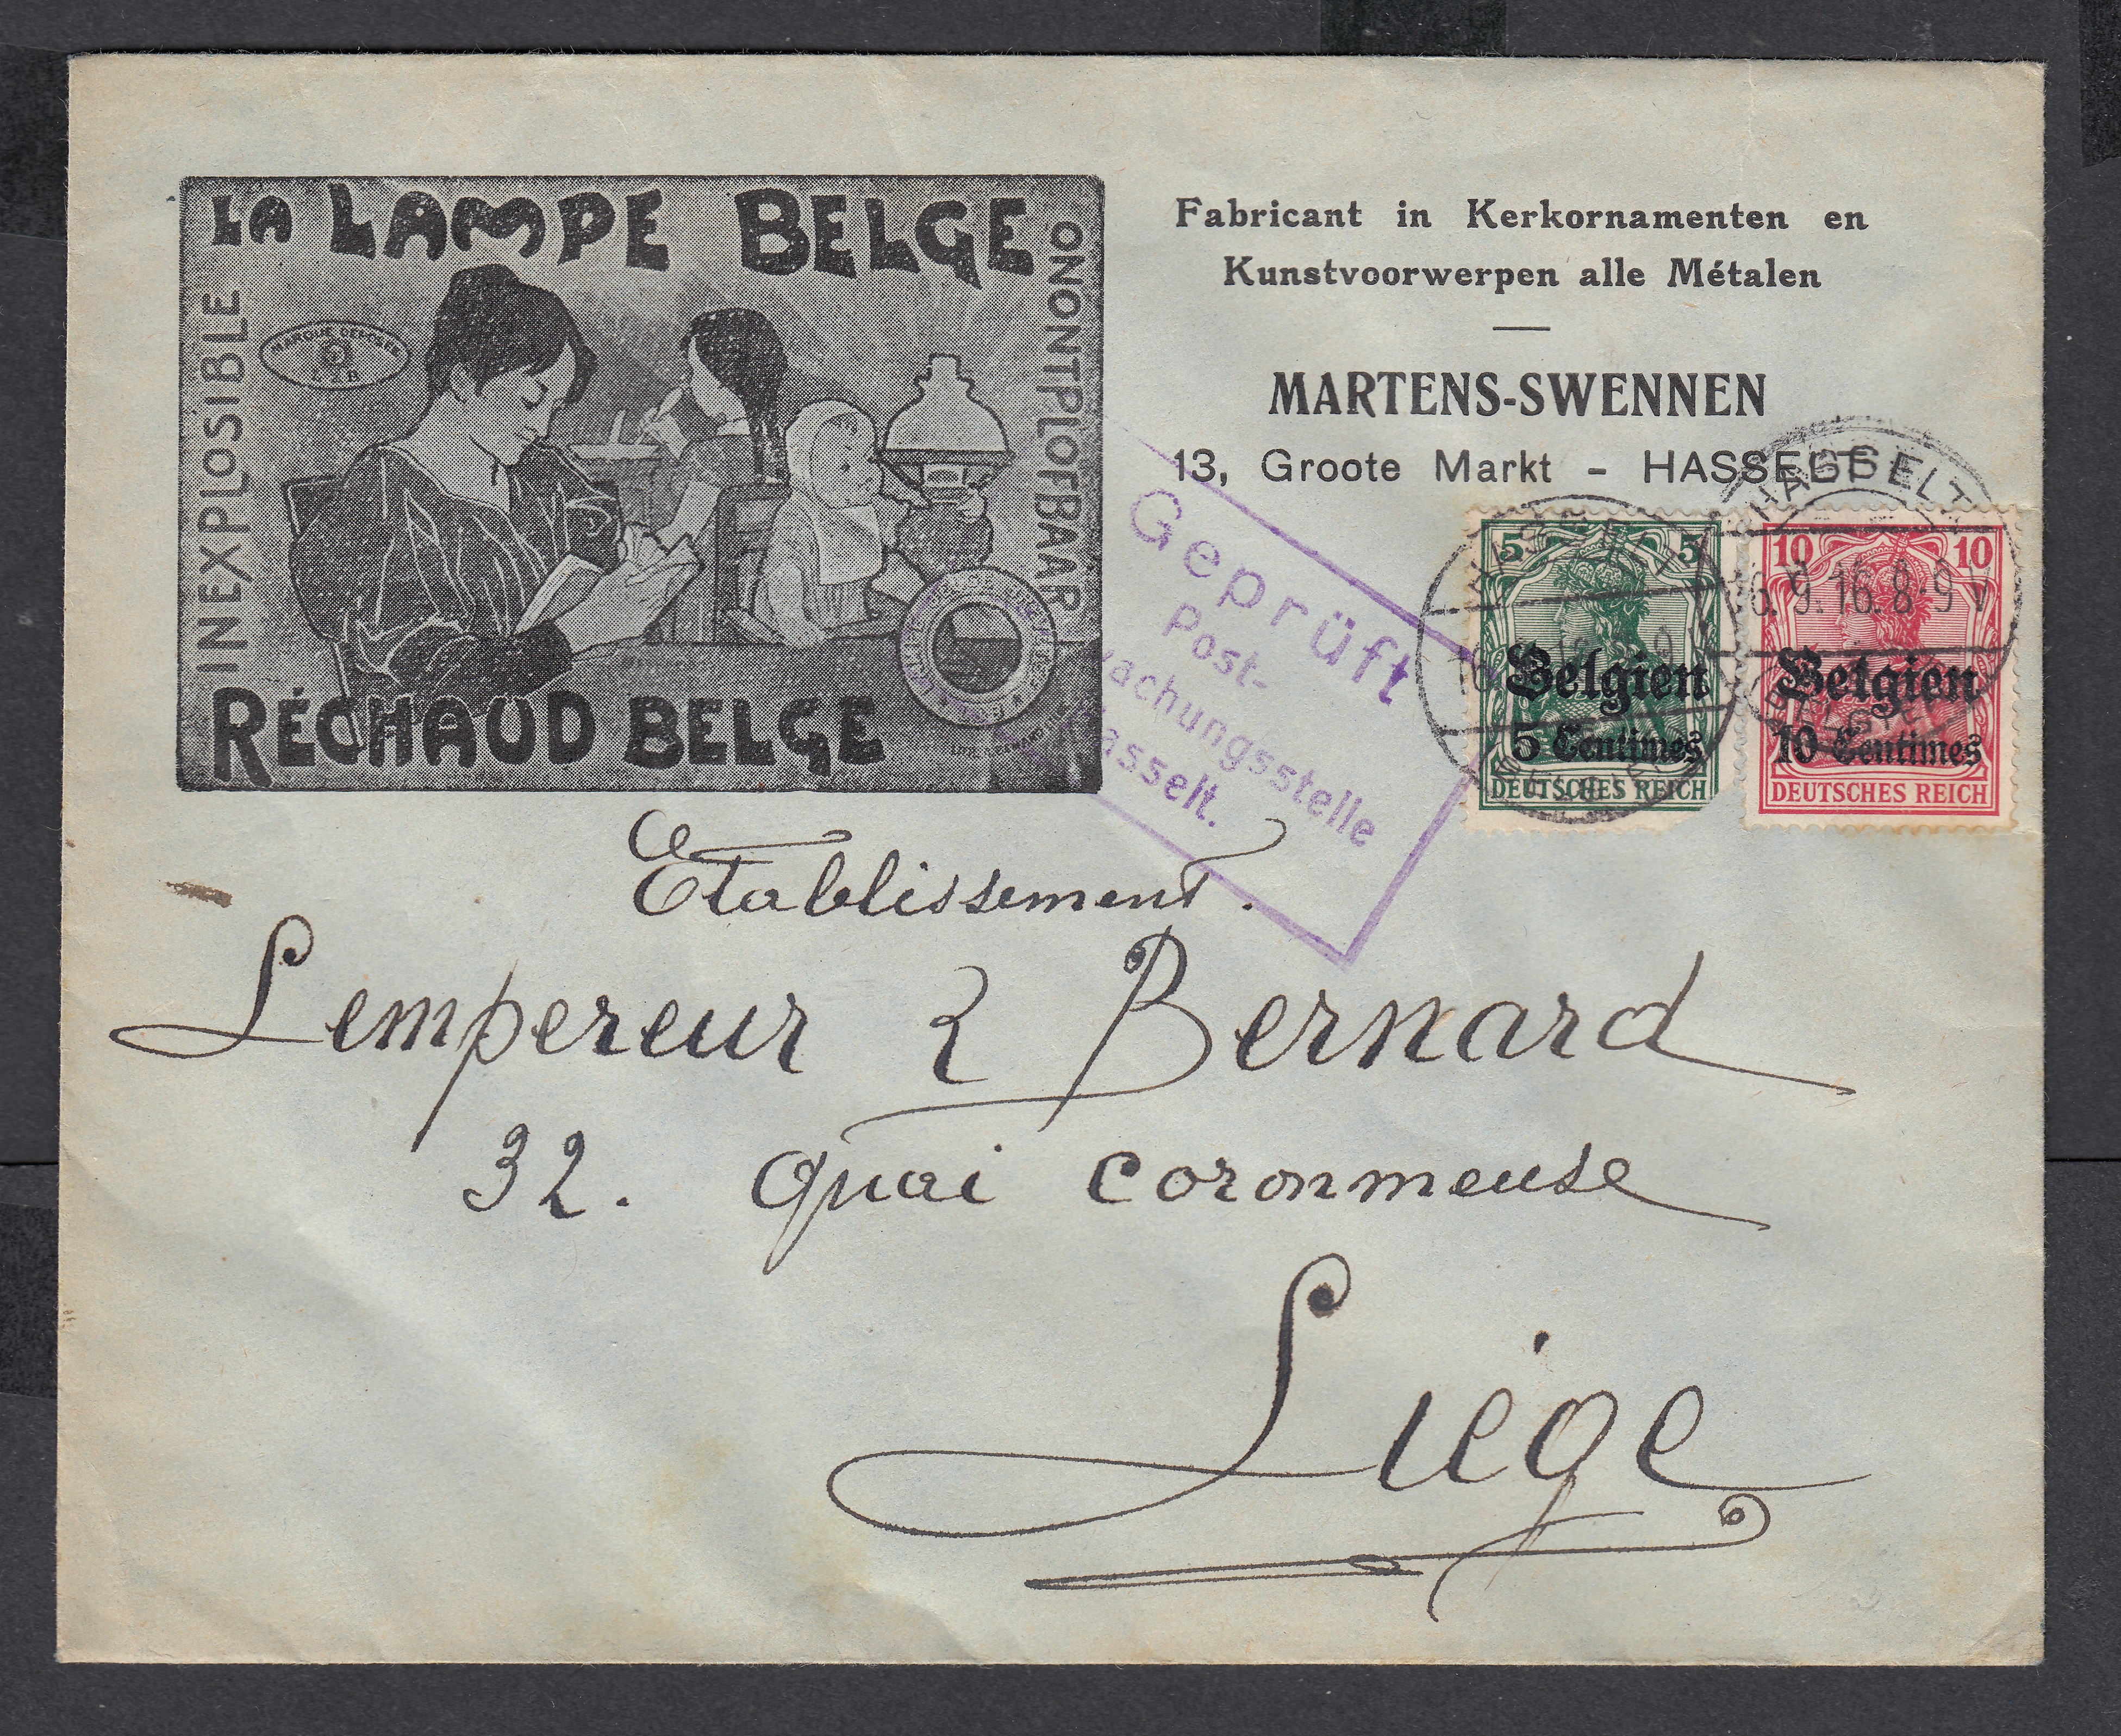 LA LAMPE BELGE
INEXPLOSIBLE
ONONTPLOFBAAR
MARQUE DÉPOSÉE
RÉCHAUD BELGE
Fabricant in Kerkornamenten en
Kunstvoorwerpen alle Métalen
MARTENS-SWENNEN
13, Groote Markt - HASSELT
Geprüft
Post-
wachungsstelle
Hasselt.
HASSELT
5 5
Belgien
5 Centimes
DEUTSCHES REICH
HASSELT
16.9.16.8-9 V
BELGIEN
10 10
Belgien
10 Centimes
DEUTSCHES REICH
Etablissement.
Lempereur & Bernard
32. quai coronmeuse
Liége